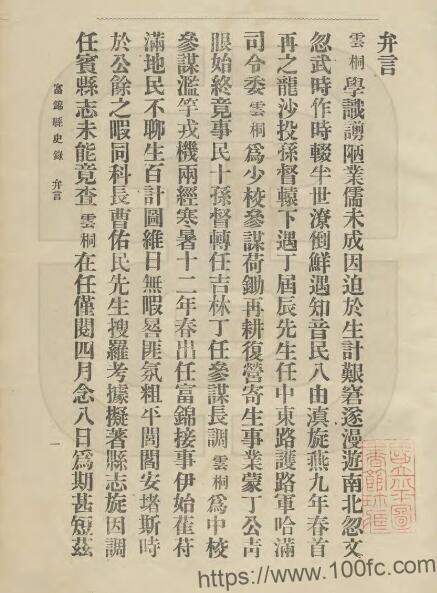 弁言
雲桐學識謭陋業儒未成因迫於生計艱窘遂漫遊南北忽文
忽武時作時輟半世潦倒鮮遇知音民八由滇旋燕九年春首
再之龍沙投孫督轅下遇丁屆辰先生任中東路護路軍哈滿
司令委雲桐爲少校參謀荷鋤再耕復營寄生事業蒙丁公靑
眼始終竟事民十孫督轉任吉林丁任參謀長調雲桐爲中校
參謀濫竽戎機兩經寒暑十二年春出任富錦接事伊始萑苻
滿地民不聊生百計圖維日無暇晷匪氛粗平閭閻安堵斯時
於公餘之暇同科長曹佑民先生搜羅考據擬著縣志旋因調
任賓縣志未能竟查雲桐在任僅閱四月念八日爲期甚短茲
富錦縣史錄 弁言
一
https://www.100fc.com